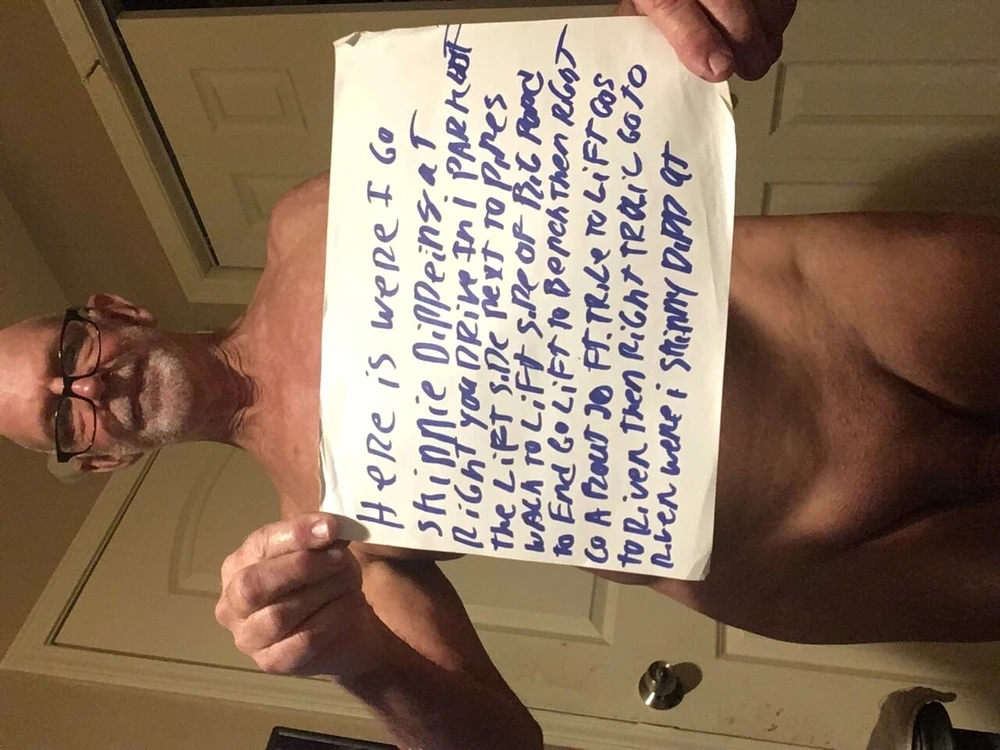 HERE iS WERE I GO
SKiNNiE DiPPEiNG AT
RiGHT YOU DRiVE IN i PARK LOT
THE LiFT SiDE NEXT TO PiPES
WALK TO LiFT SiDE OF BIG POND
TO END GO LiFT TO BENCH THEN RiGHT
GO A BOUT 20 FT. TRiLE TO LiFT GOS
TO RiVER THEN RiGHT TRAiL GO TO
RiVER WERE i SKiNNY DiPP AT